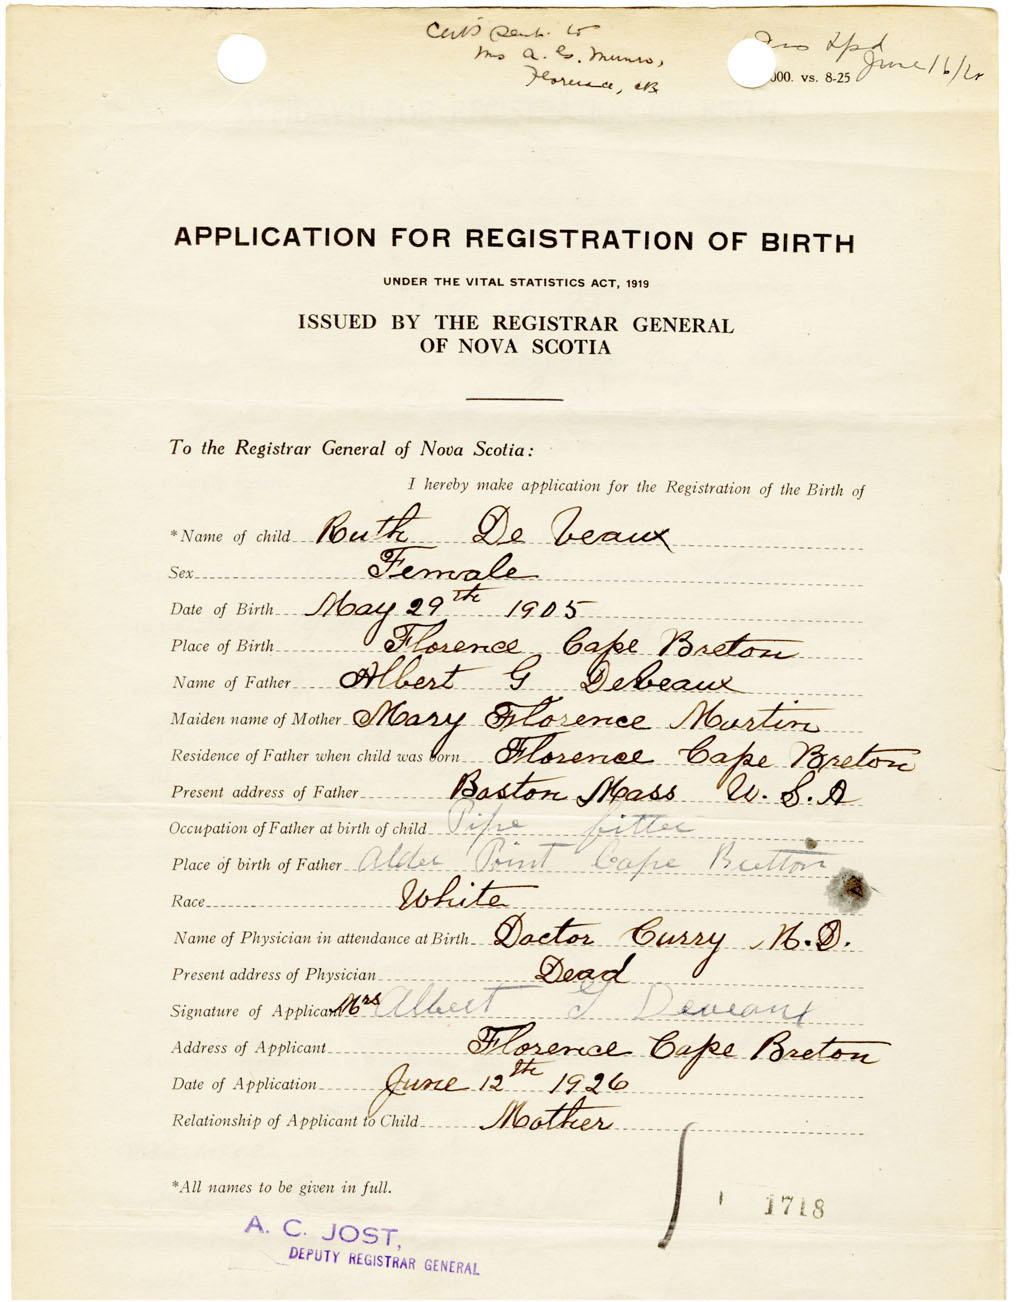 Cert's sent to
Mrs A. G. Munro,
Florence, CB
June 16/26
000. vs. 8-25
APPLICATION FOR REGISTRATION OF BIRTH
UNDER THE VITAL STATISTICS ACT, 1919
ISSUED BY THE REGISTRAR GENERAL
OF NOVA SCOTIA
To the Registrar General of Nova Scotia:
I hereby make application for the Registration of the Birth of
*Name of child Ruth De Veaux
Sex Female
Date of Birth May 29th 1905
Place of Birth Florence Cape Breton
Name of Father Albert G DeVeaux
Maiden name of Mother Mary Florence Martin
Residence of Father when child was born Florence Cape Breton
Present address of Father Boston Mass U.S.A
Occupation of Father at birth of child Pipe fitter
Place of birth of Father Alder Point Cape Bretton
Race White
Name of Physician in attendance at Birth Doctor Curry M.D.
Present address of Physician Dead
Signature of Applicant Mrs Albert G Deveaux
Address of Applicant Florence Cape Breton
Date of Application June 12th 1926
Relationship of Applicant to Child Mother
*All names to be given in full.
1718
A. C. JOST,
DEPUTY REGISTRAR GENERAL